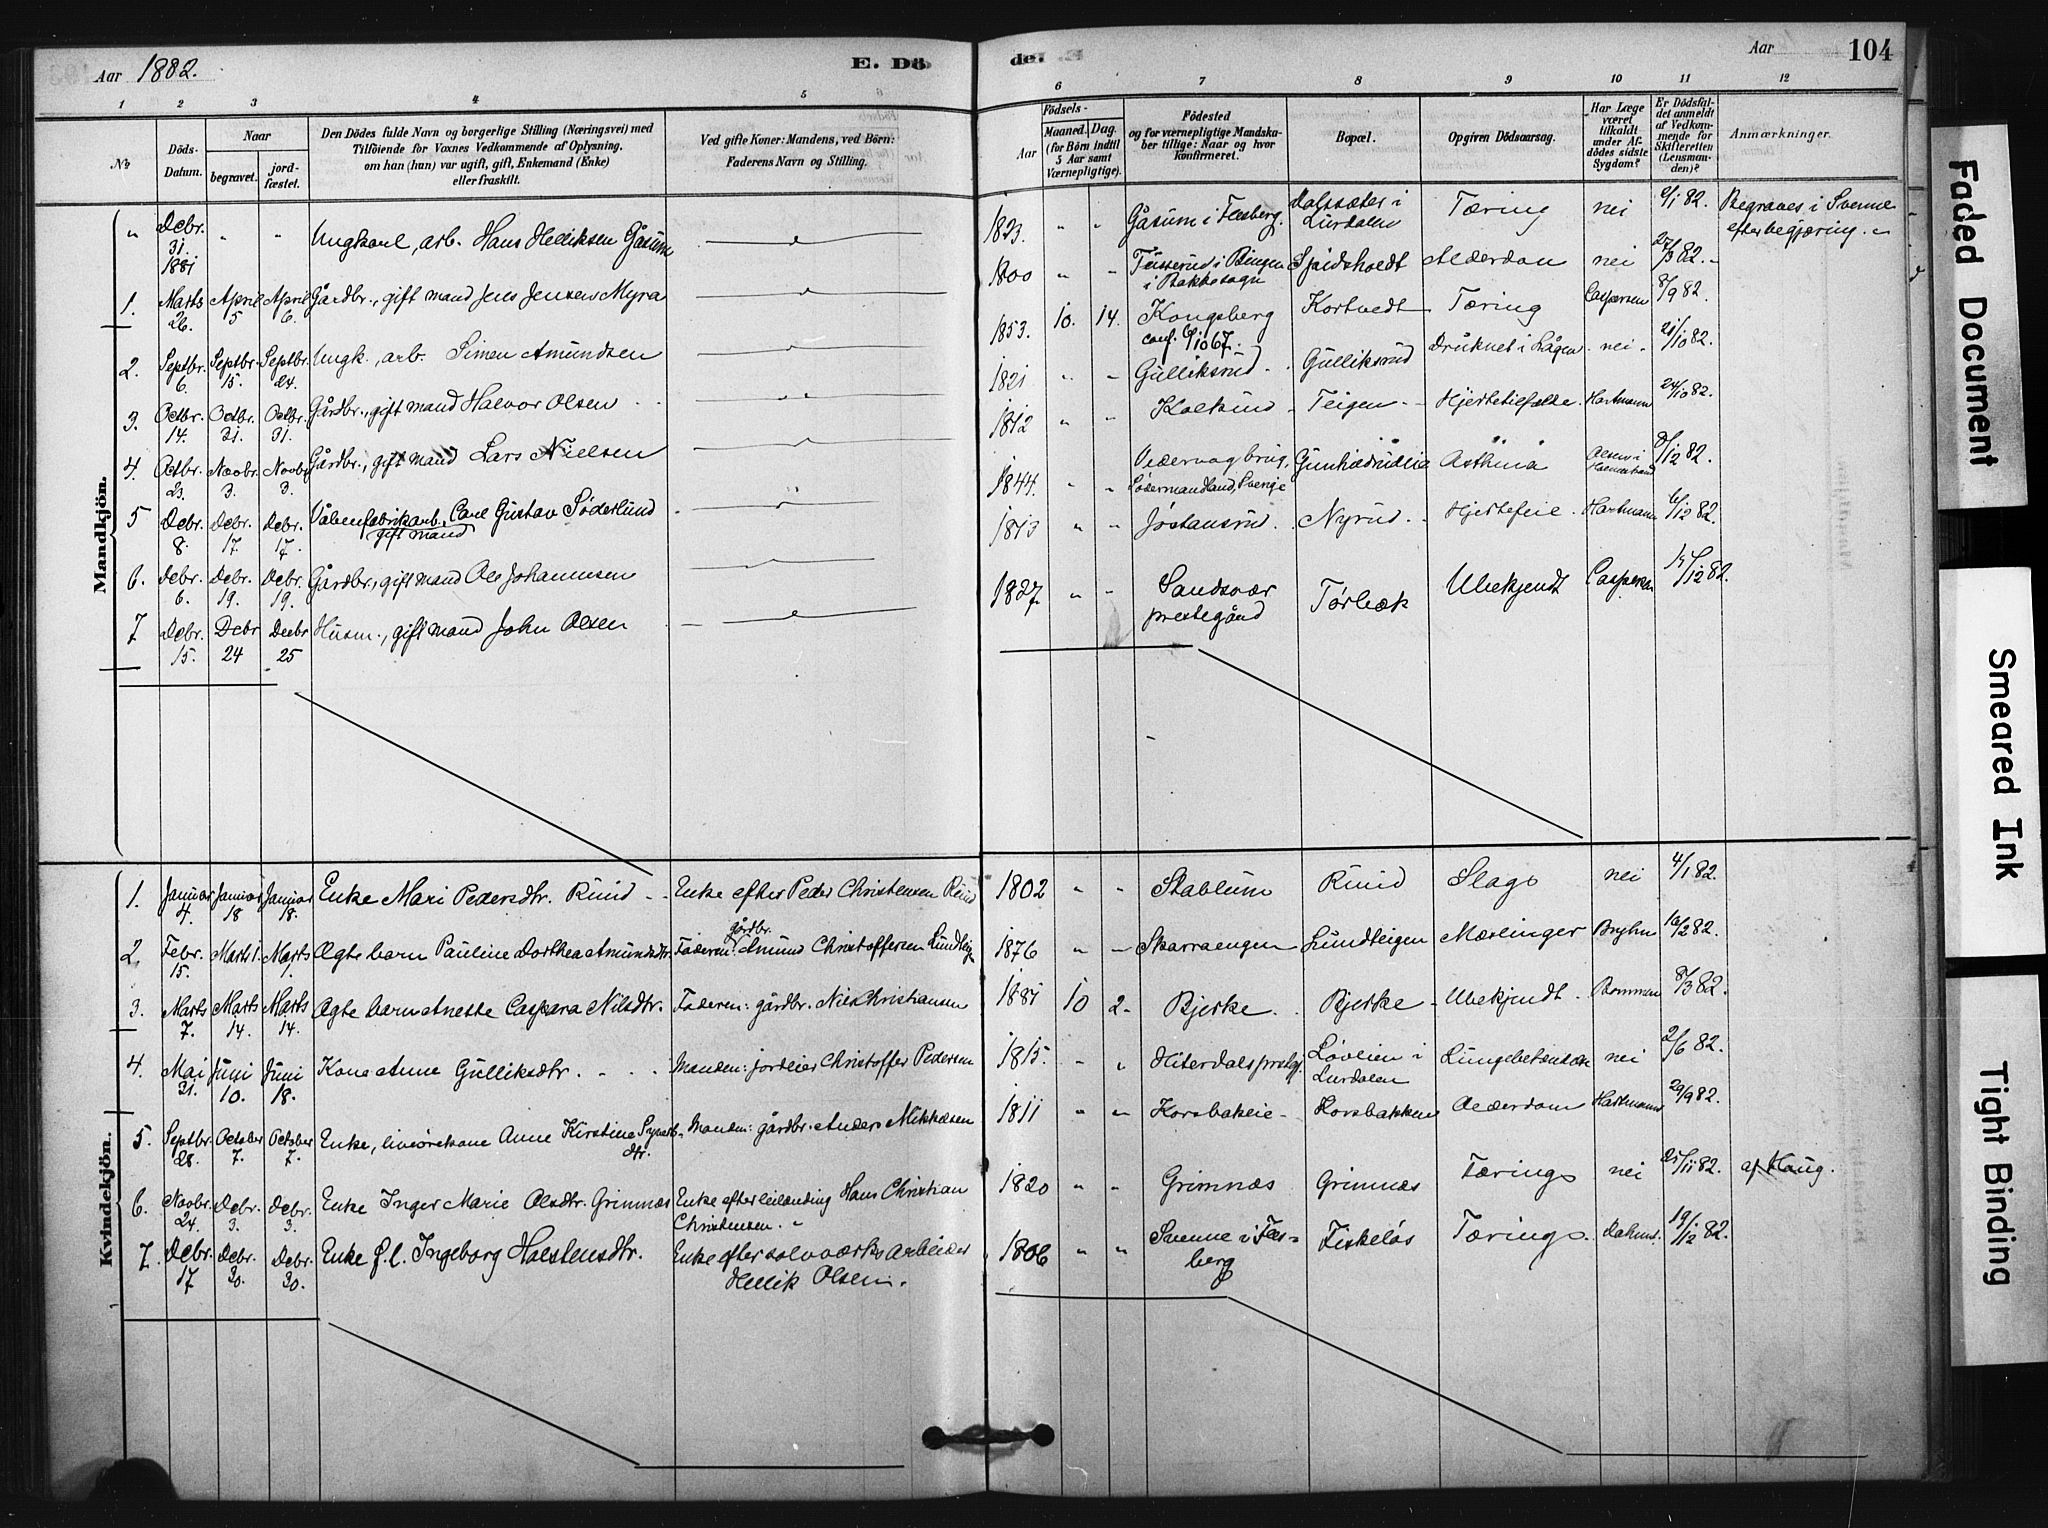 Aar 1882.
E. Dö
de.
Aar
104
1 2 3 4 5 6 7 8 9 10 11 12
No
Döds-Datum.
Naar
begravet.
jord-fæstet.
Den Dödes fulde Navn og borgerlige Stilling (Næringsvei) med
Tilföiende for Voxnes Vedkommende af Oplysning.
om han (hun) var ugift, gift, Enkemand (Enke)
eller fraskilt.
Ved gifte Koner: Mandens, ved Börn:
Faderens Navn og Stilling.
Födsels-
Aar
Maaned. Dag.
(for Börn indtil
5 Aar samt
Værnepligtige).
Födested
og for værnepligtige Mandska-
ber tillige: Naar og hvor
konfirmeret.
Bopæl.
Opgiven Dödsaarsag.
Har Læge
været
tilkaldt
under Af-
dödes sidste
Sygdom?
Er Dödsfal-
det anmeldt
af Vedkom-
mende for
Skifteretten
(Lensman-
den)?
Anmærkninger.
Mandkjön.
" Debr. 31. 1881 " " Ungkarl, arb. Hans Helliksen Gåsum 1823. " " Gåsum i Flesberg. Dalssæter i Lurdalen Tæring nei 2/1 82. Begraves i Svenne efter begjæring.
1. Marts 26. April 5 April 6. Gårdbr., gift mand Jens Jensens Myra 1800 " " i Bakkesogn Spidsholdt Alderdom nei 27/3 82.
2. Septbr. 6. Septbr. 15. Septbr. 24. Ungk., arb. Simen Amundsen 1853. 10. 14. Kongsberg conf. 6/10 67. Kortvedt Tæring Caspersen 8/9 82.
3. Octbr. 14. Octbr. 31. Octbr. 31. Gårdbr., gift mand Halvor Olsen 1821 " " Gulliksrud Gulliksrud Druknet i Lågen nei 21/10 82.
4. Octbr. 23. Novbr. 3. Novbr. 3. Gårdbr., gift mand Lars Nielsen 1812 " " Kolsrud Teigen Hjertetilfælde. Hartmann 24/10 82.
5 Debr. 8. Debr. 17. Debr. 17. Våbenfabrikarb., gift mand Carl Gustav Søderlund 1844. " " Södermandland, Sverige Gunhildrudlia Asthma 9/12 82.
6. Debr. 6. Debr. 19. Debr. 19. Gårdbr., gift mand Ole Johannesen 1813 " " Jøstansrud Nyrud Hjertefeil Hartmann 6/12 82.
7 Debr. 15. Debr 24 Decbr 25 Husm., gift mand John Olsen 1827. " " Sandsvær prestegård Tørbæk Ubekjendt Caspersen 15/12 82.
Kvindekjön.
1. Januar 4. Januar 18 Januar 18. Enke Mari Pedersdtr. Ruud Enke efter Peder Christensen Ruud 1802 " " Stablum Ruud Slag nei 4/1 82.
2. Febr. 15. Marts 1. Marts 1. Ægte barn Pauline Dorthea Amundsdtr. Faderen: gårdbr. Amund Christoffersen Lundteigen 1876 " " Skarraengen Lundteigen Mæslinger Bryhn 16/2 82.
3. Marts 7. Marts 14. Marts 14. Ægte barn Anette Caspara Nilsdtr. Faderen: gårdbr. Nils Christiansen 1881 10 2 Bjerke Bjerke Ubekjendt Bomman 8/3 82.
4. Mai 31. Juni 10. Juni 18. Kone Anne Gulliksdtr. Manden: jordleier Christoffer Pedersen 1815. " " Hiterdals prstgj. Løvlien i Lurdalen Lungebetændelse nei 2/6 82.
5. Septbr. 28. October 7. October 7. Enke, livørekone Anne Kirstine Syvertsdtr. Manden: gårdbr. Anders Mikkelsen 1811 " " Korsbakeie Korsbakken Alderdom Hartmann 29/9 82.
6. Novbr. 24. Debr. 3. Debr. 3. Enke Inger Marie Olsdtr. Grimnæs Enke efter leilænding Hans Christian Christensen. 1820 " " Grimnæs Grimnæs Tærings nei 25/11 82. af Haug.
7. Debr. 17 Debr. 30. Debr. 30. Enke f. l. Ingeborg Halstensdtr. Enke efter sølvværksarbeider Hellik Olsen. 1806 " " Svenne i Flesberg Fiskeløs Tærings. 19/12 82.
Faded Document
Smeared Ink
Tight Binding